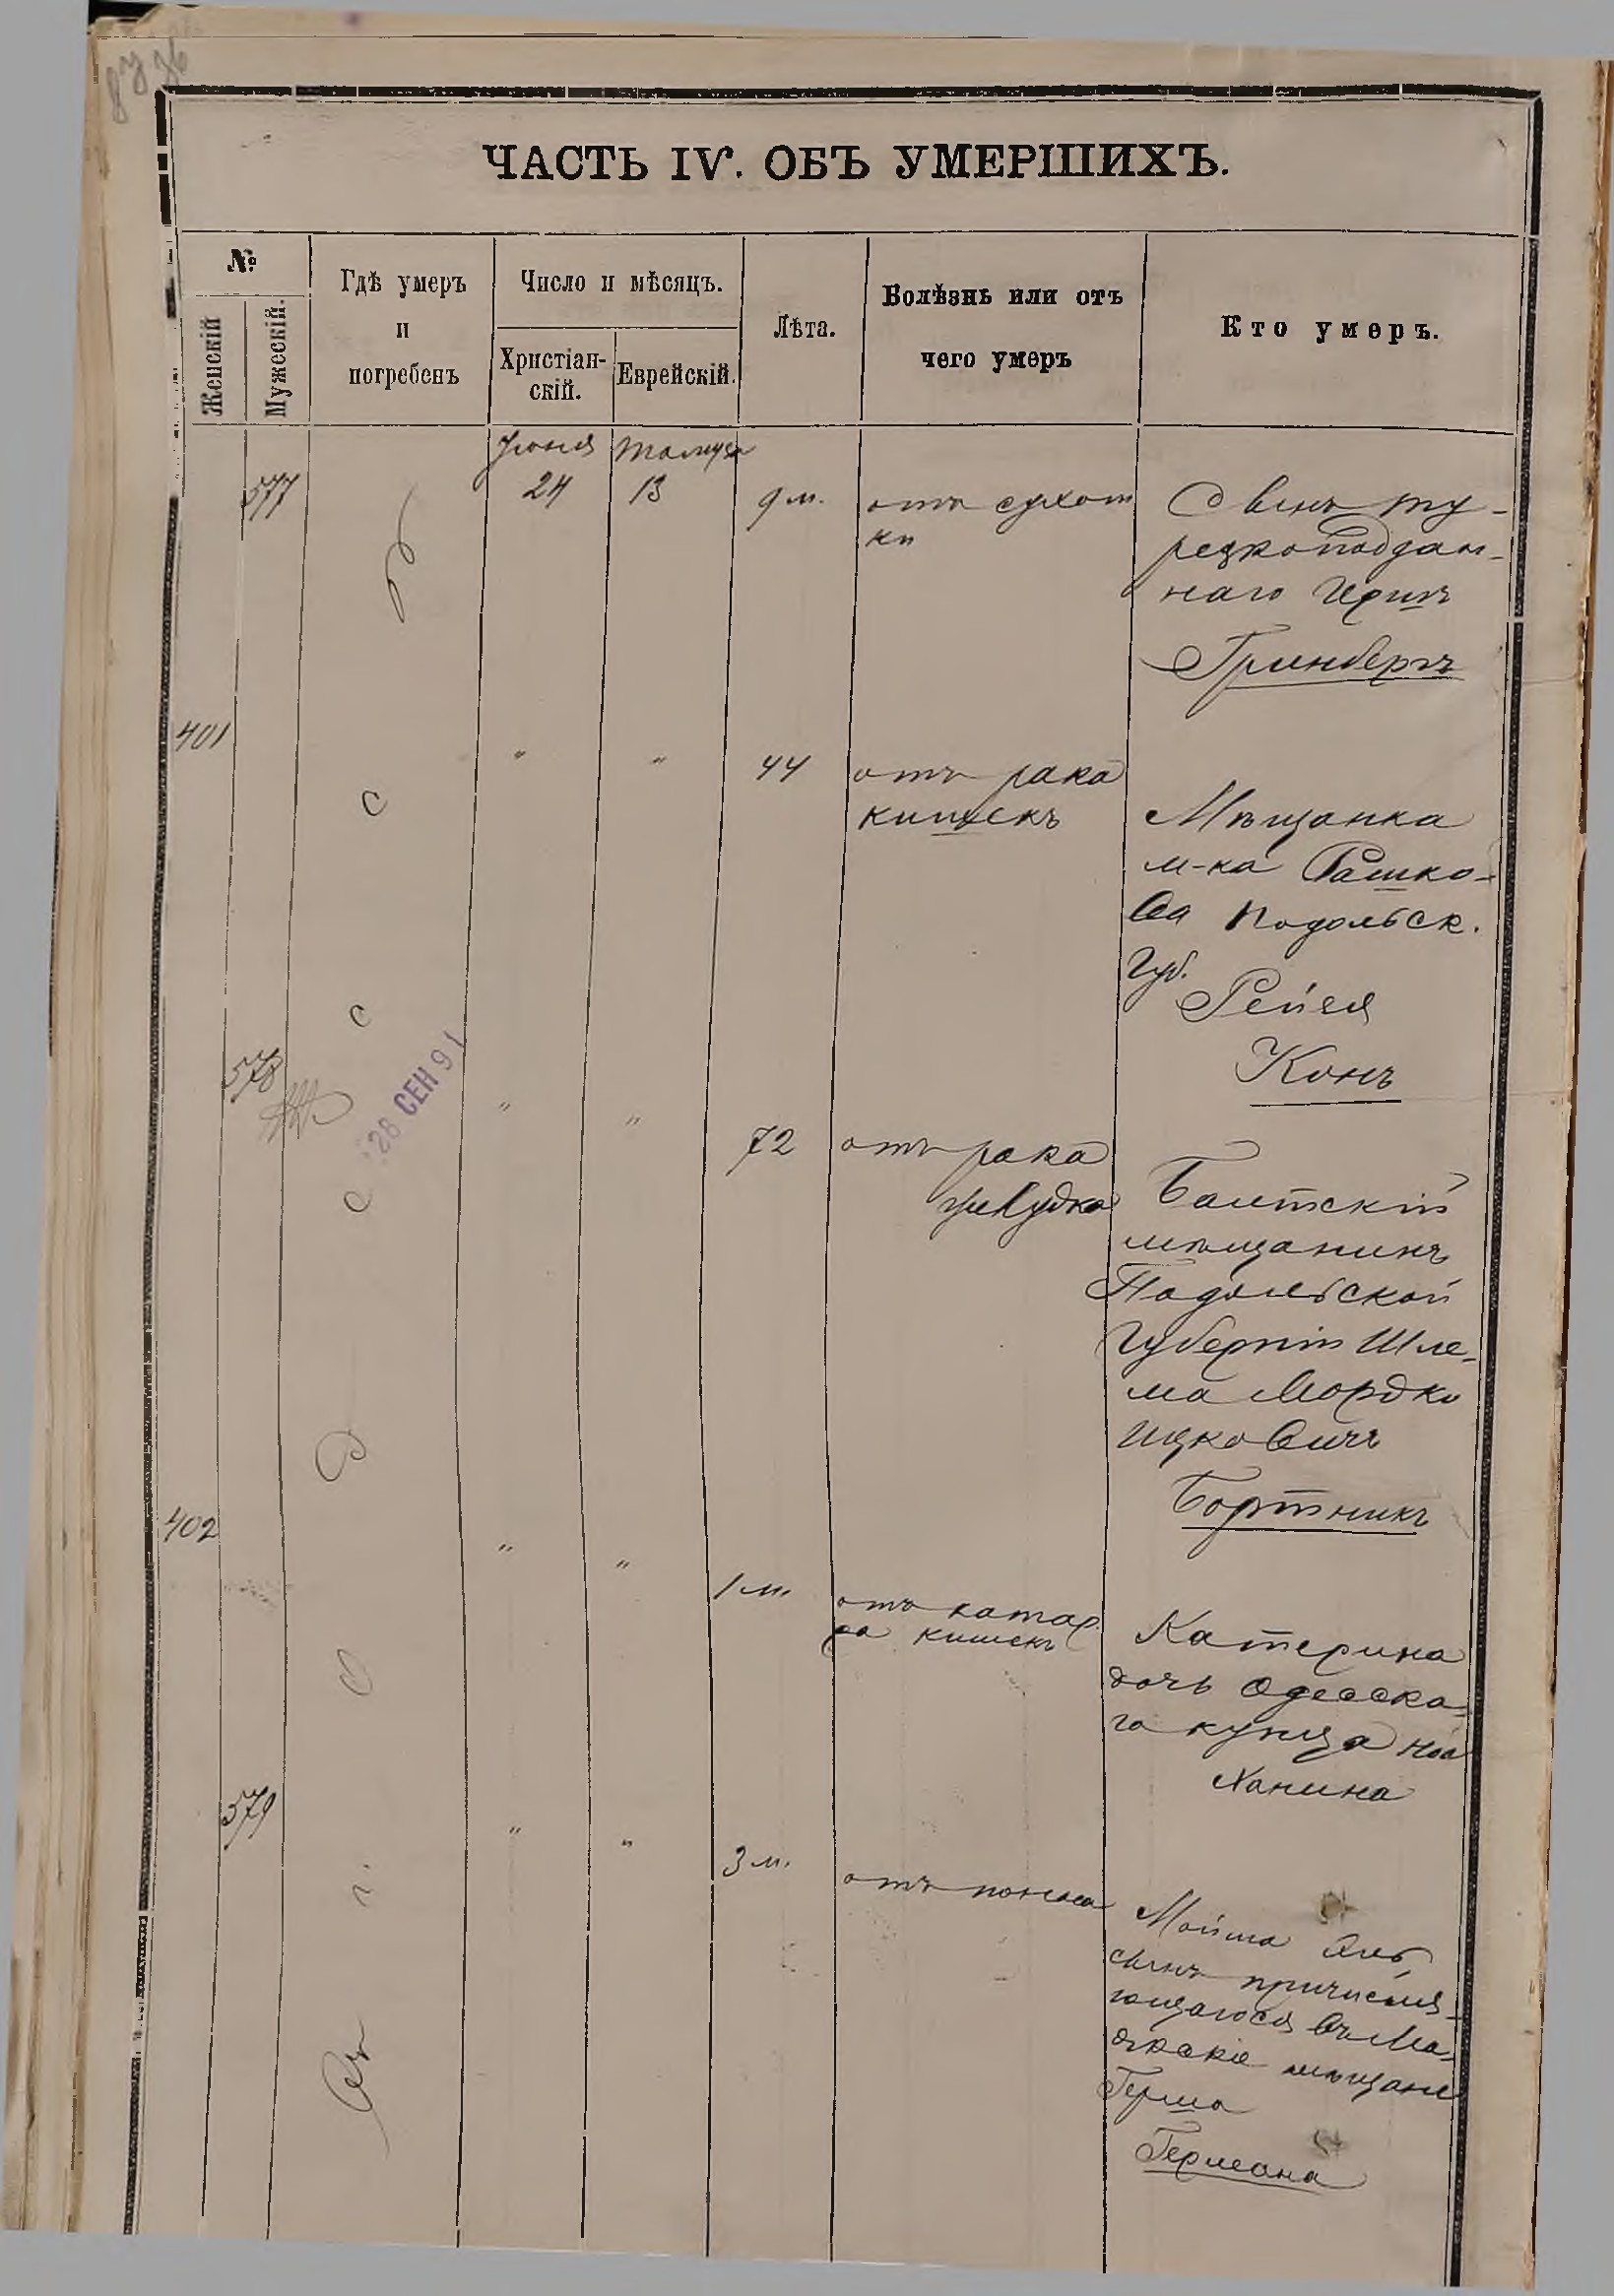 ЧАСТЬ IV. ОБЪ УМЕРШИХЪ.
№
Женскій
Мужескій.
Гдѣ умеръ
и
погребенъ
Число и мѣсяцъ.
Христіан-
скій.
Еврейскій.
Лѣта.
Болѣзнь или отъ
чего умеръ
Кто умеръ.
Іюня Тамуза
577 24 13 9 м. отъ сухот
ки
Сынъ ту-
рецкоподдан-
наго
Гринбергъ
401 " " 44 отъ рака
кишекъ
Мѣщанка
м-ка Рашко-
ва Подольск.
Губ.
Рейзя
Конъ
578 " " 72 отъ рака
желудка
28 СЕН 91
Балтскій
мѣщанинъ
Подольской
Губерніи Шле-
ма Мордко
Ицковичъ
Бортникъ
402 " " 1 м. отъ катар
ра кишекъ
Катерина
дочь Одесска-
го купца Ноа
Ханина
579 " " 3 м. отъ поноса
Мойша
сынъ причисля-
ющагося въ
мѣщане
Герша
Германа
О
д
е
с
с